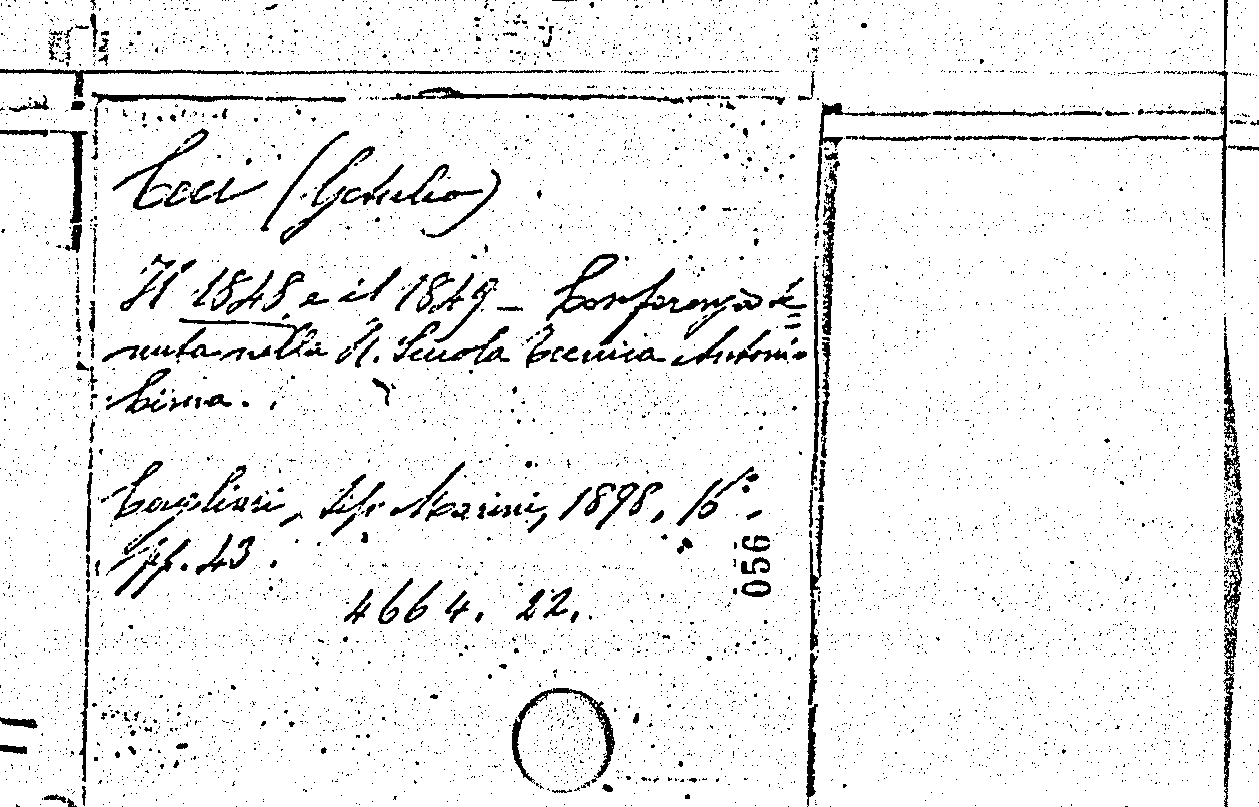 Ceci (Getulio)
Il 1848 e il 1849 – Conferenza te=
nuta nella R. Scuola Tecnica Antonio
Cima.
Cagliari, tip. Marini, 1898, 16°,
pp. 43.
4664. 22.
056